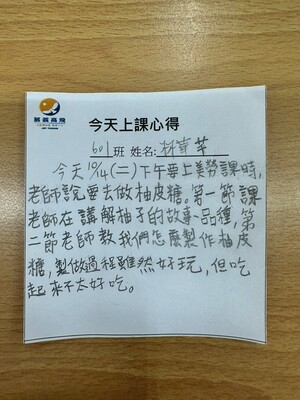 展翼高飛
今天上課心得
601班 姓名:林韋芊
今天10/14(二)下午要上美勞課時,
老師說要去做柚皮糖。第一節課
老師在講解柚子的故事、品種,第
二節老師教我們怎麼製作柚皮
糖,製做過程雖然好玩,但吃
起來不太好吃。